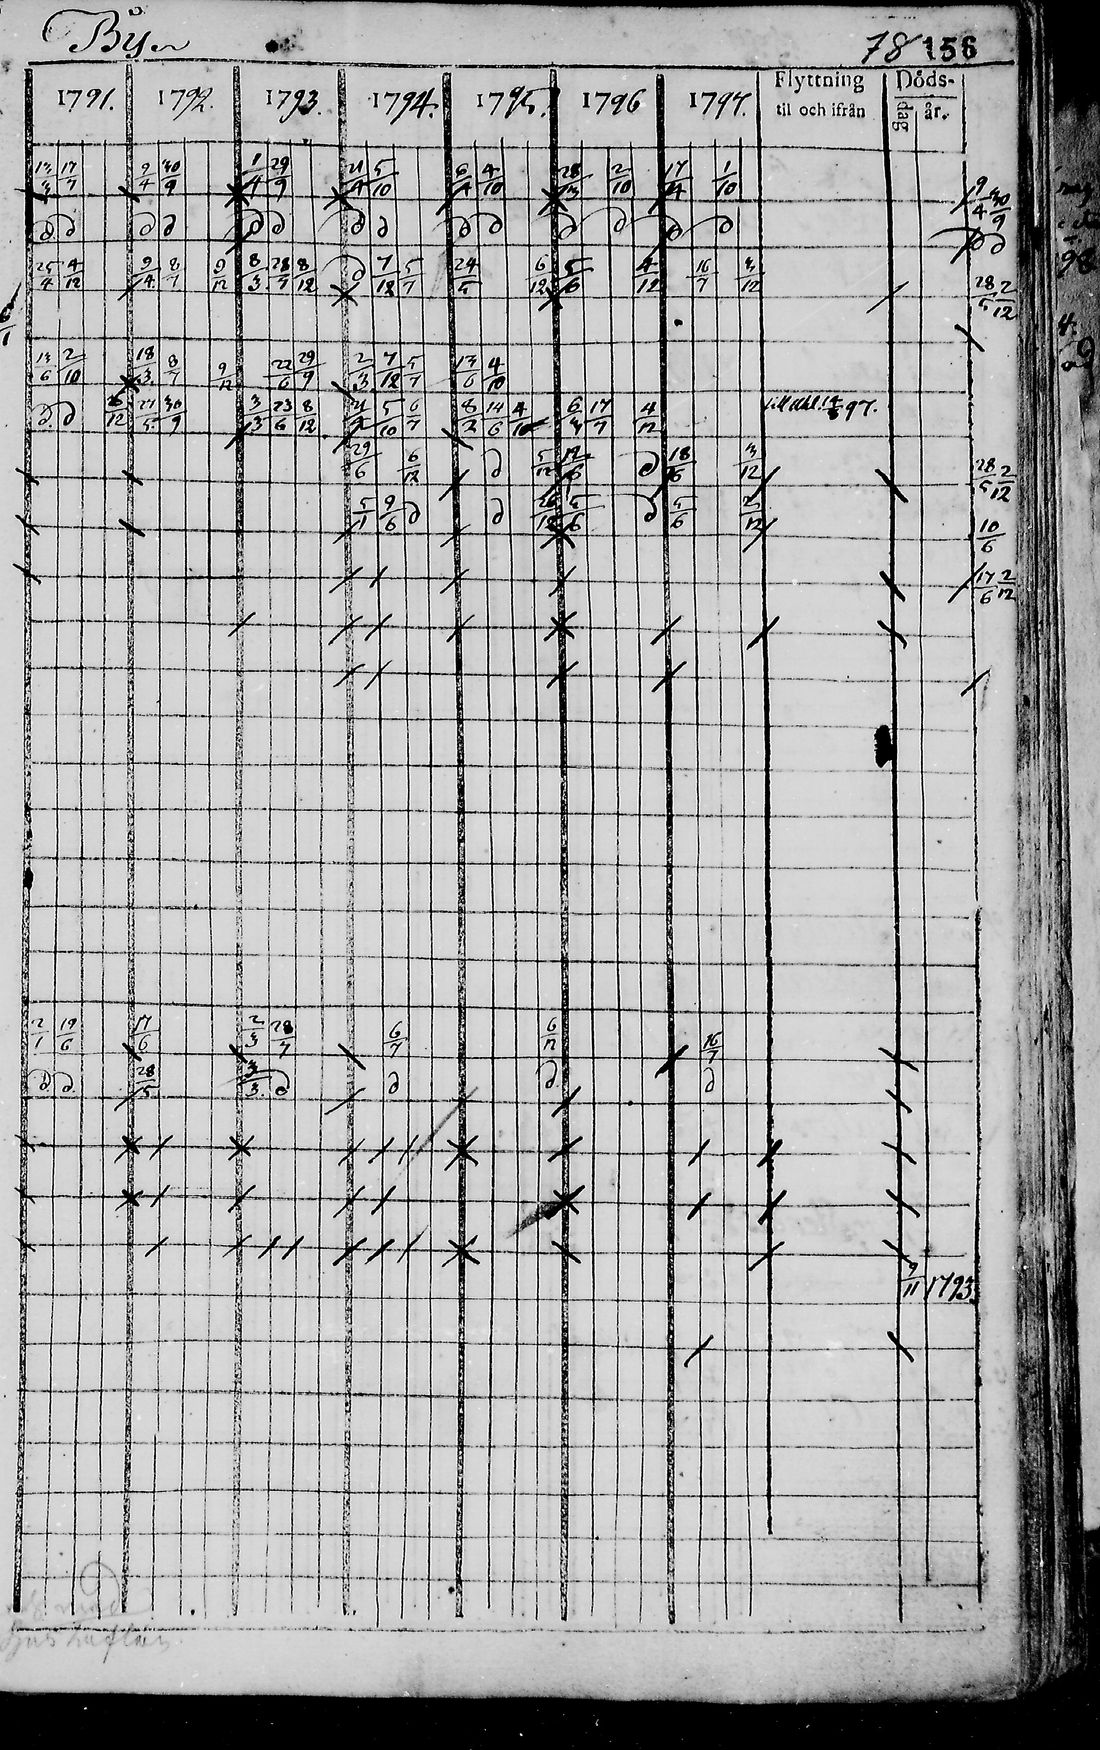 By 78 156
1791. 1792. 1793. 1794. 1795. 1796 1797. Flyttning til och ifrån Döds- dag år.
13/3 17/7 9/4 30/9 1/4 29/9 21/4 5/10 6/4 4/10 28/3 2/10 17/4 1/10 9/4 30/9
d d d d d d d d d d d d d d d d
25/4 4/12 9/4 8/7 9/12 8/3 28/7 8/12 d 7/12 5/7 24/5 6/12 5/6 4/12 16/7 3/12 28/5 2/12
13/6 2/10 18/3 8/7 9/12 22/6 29/9 2/3 7/12 5/7 13/6 4/10
d d 27/5 30/9 3/3 23/6 8/12 21/4 5/10 6/7 8/2 14/6 4/10 6/3 17/7 4/12 97.
29/6 6/12 d 5/12 12/6 d 18/6 3/12 28/5 2/12
5/1 9/6 d d 26/12 5/6 d 5/6 2/12 10/6
17/6 2/12
2/1 19/6 17/6 2/3 28/7 6/7 6/12 16/7
d d 28/5 3/3 d d d d
9/11 1793.